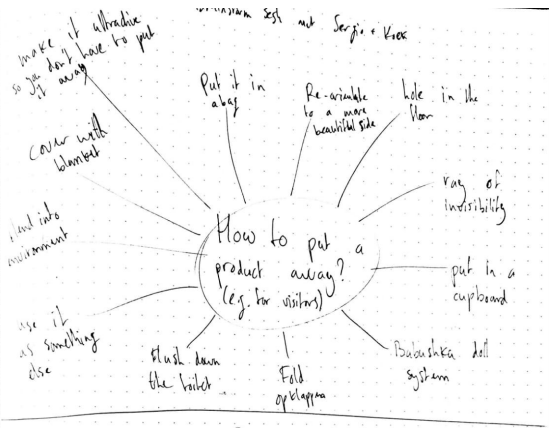 sess met Sergio + Koex
make it attractive
so you don't have to put
it away
Put it in
a bag
Re-orientate
to a more
beautiful side
hole in the
floor
cover with
blanket
ray of
invisibility
blend into
environment
How to put a
product away?
(e.g. for visitors)
put in a
cupboard
use it
as something
else
flush down
the toilet
Fold
opklappen
Babushka doll
system